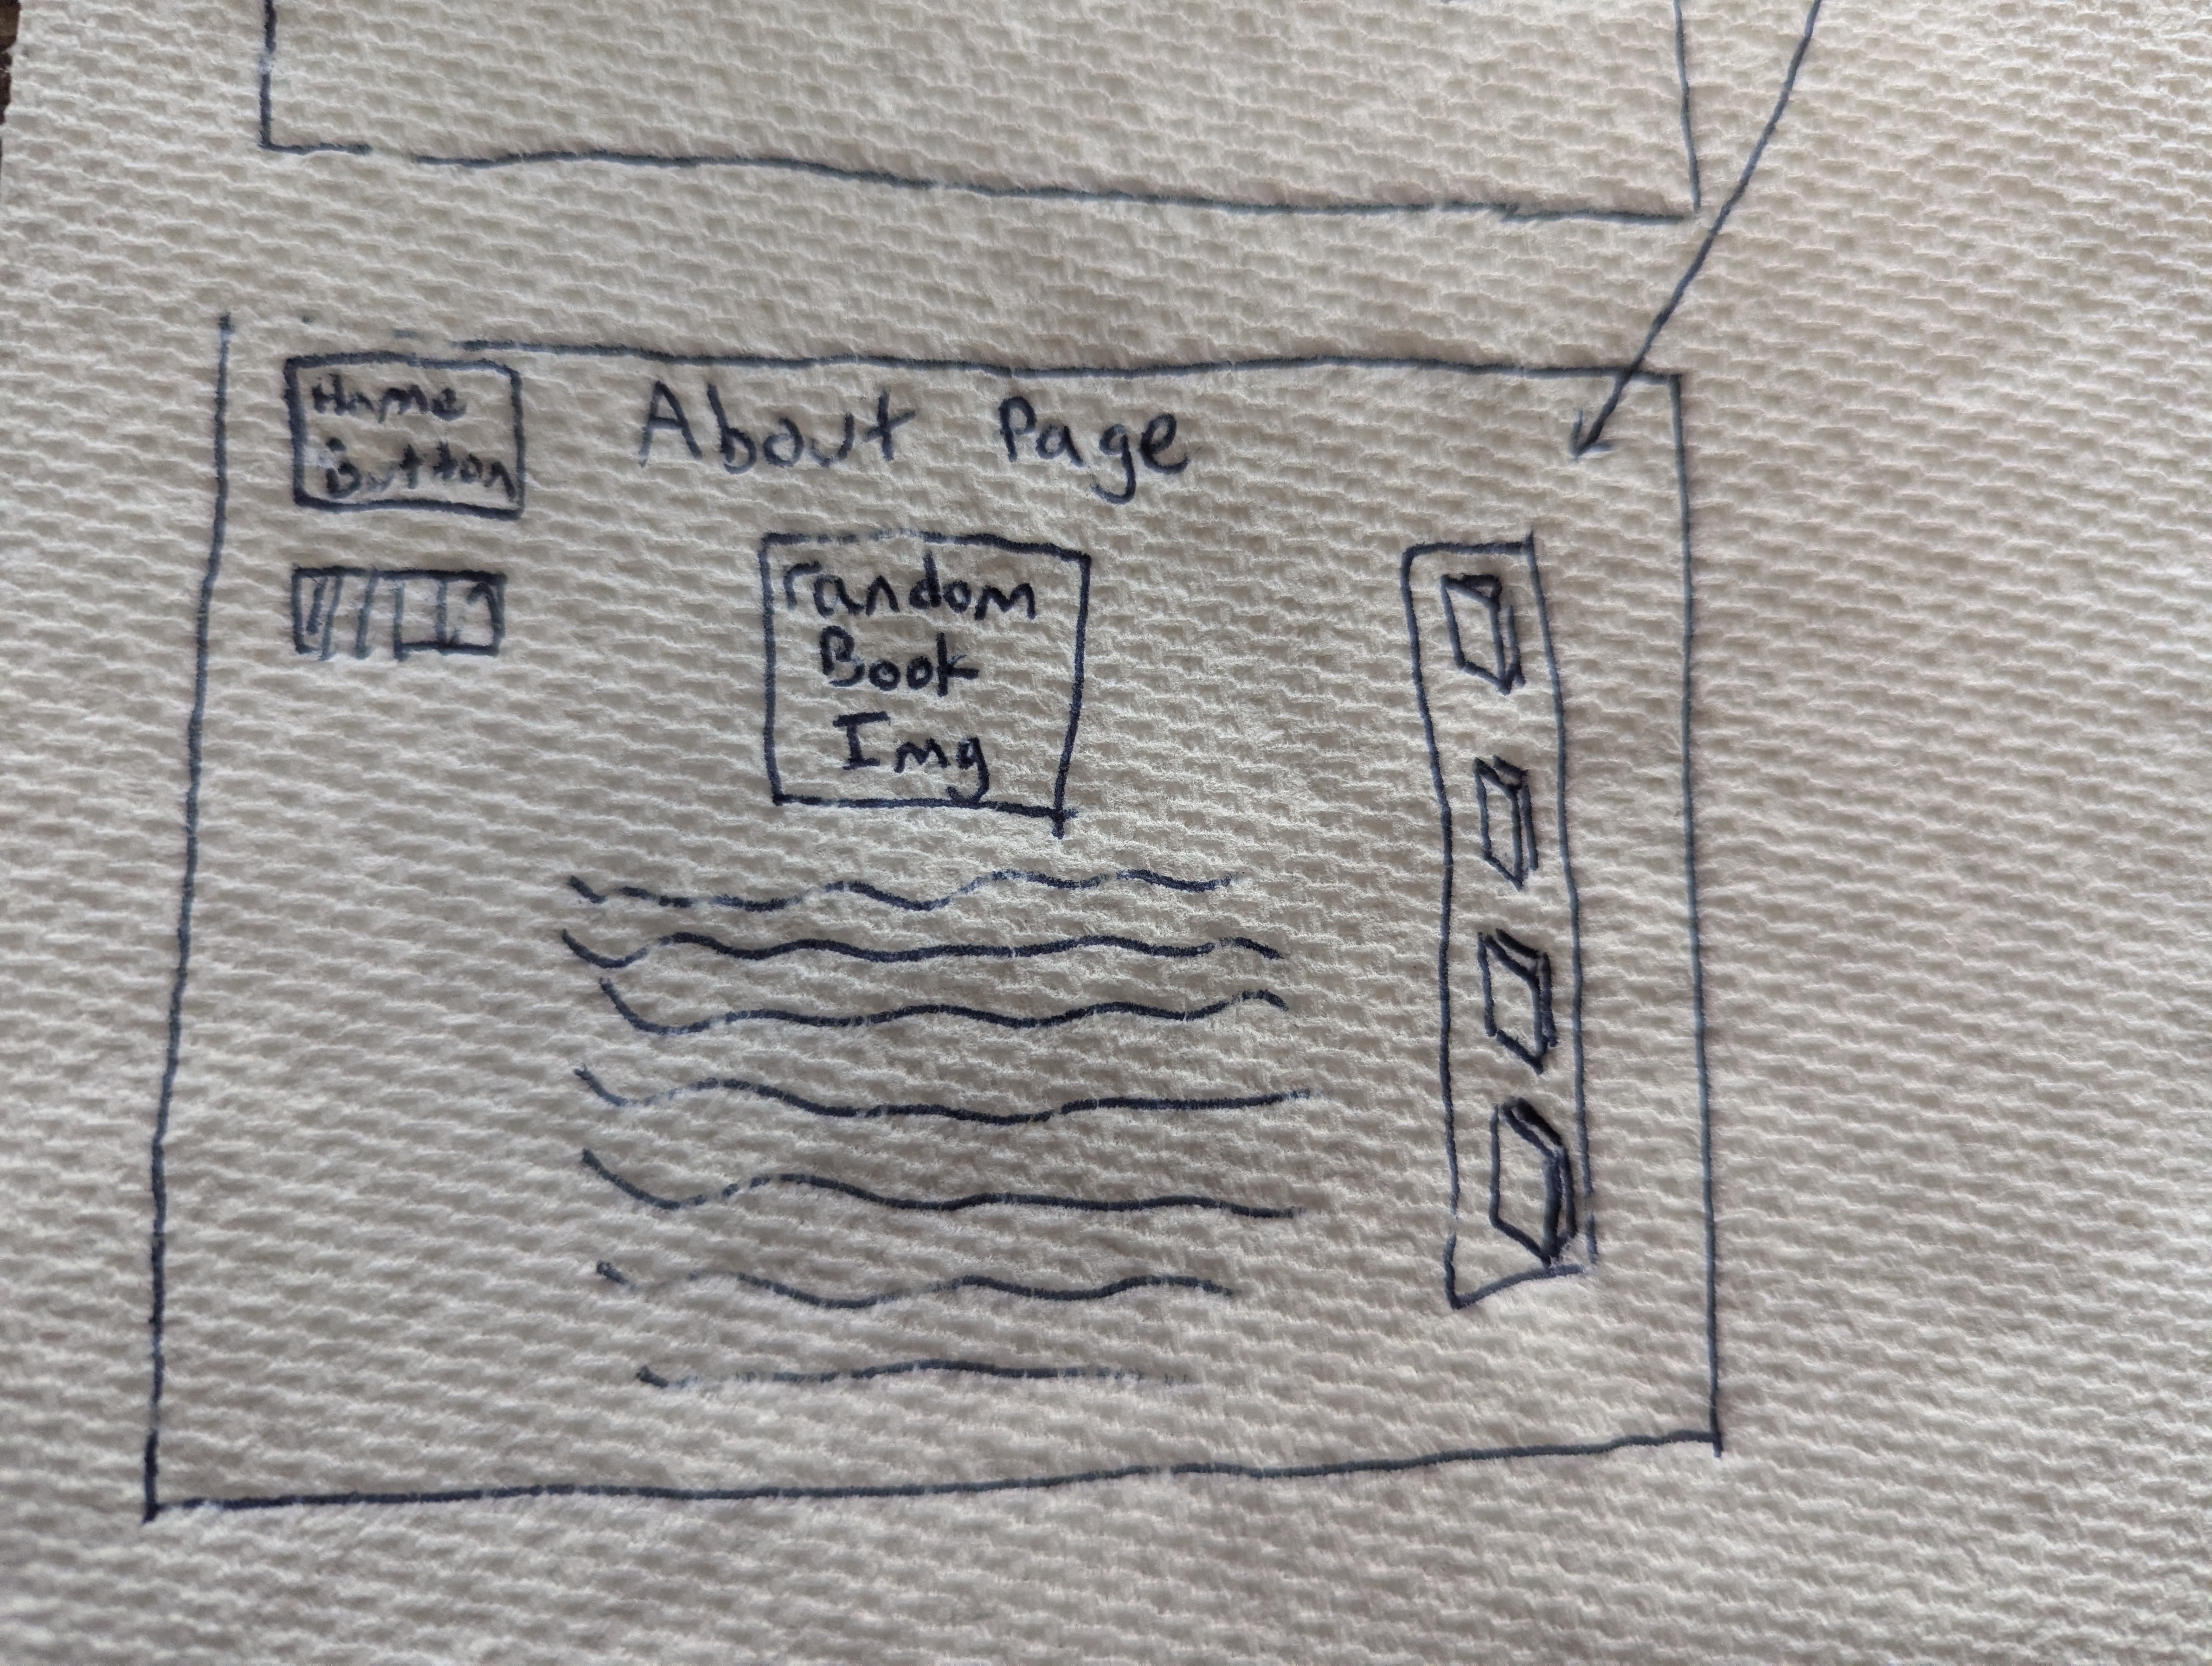 Home
Button
About Page
random
Book
Img